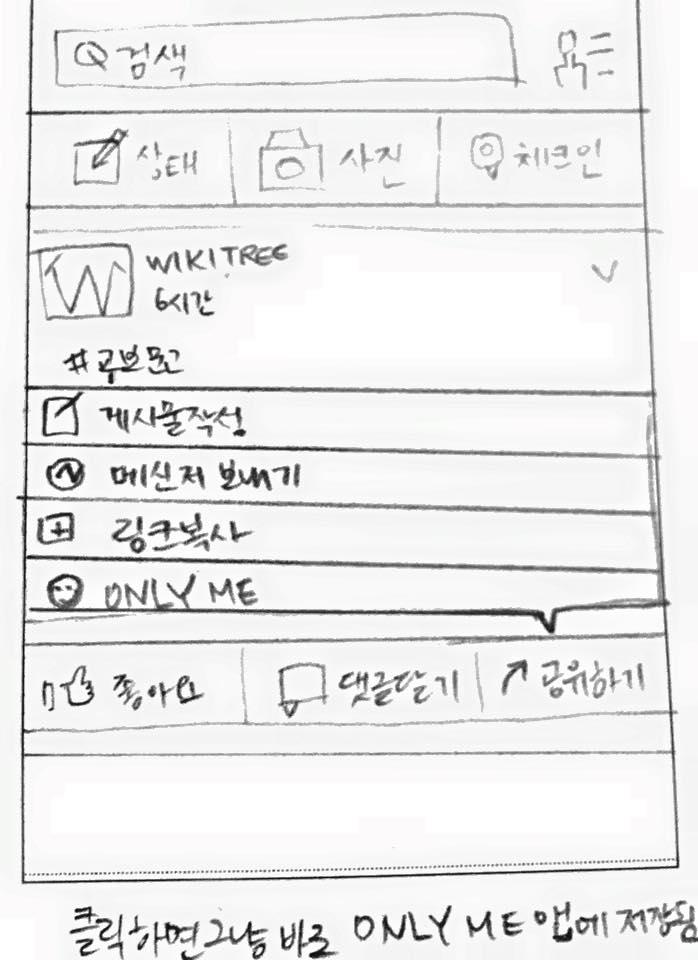 검색
상태 사진 체크인
W WIKITREE
6시간
게시물작성
메신저 보내기
링크복사
ONLY ME
좋아요 댓글달기 공유하기
클릭하면 그냥 바로 ONLY ME 앱에 저장됨